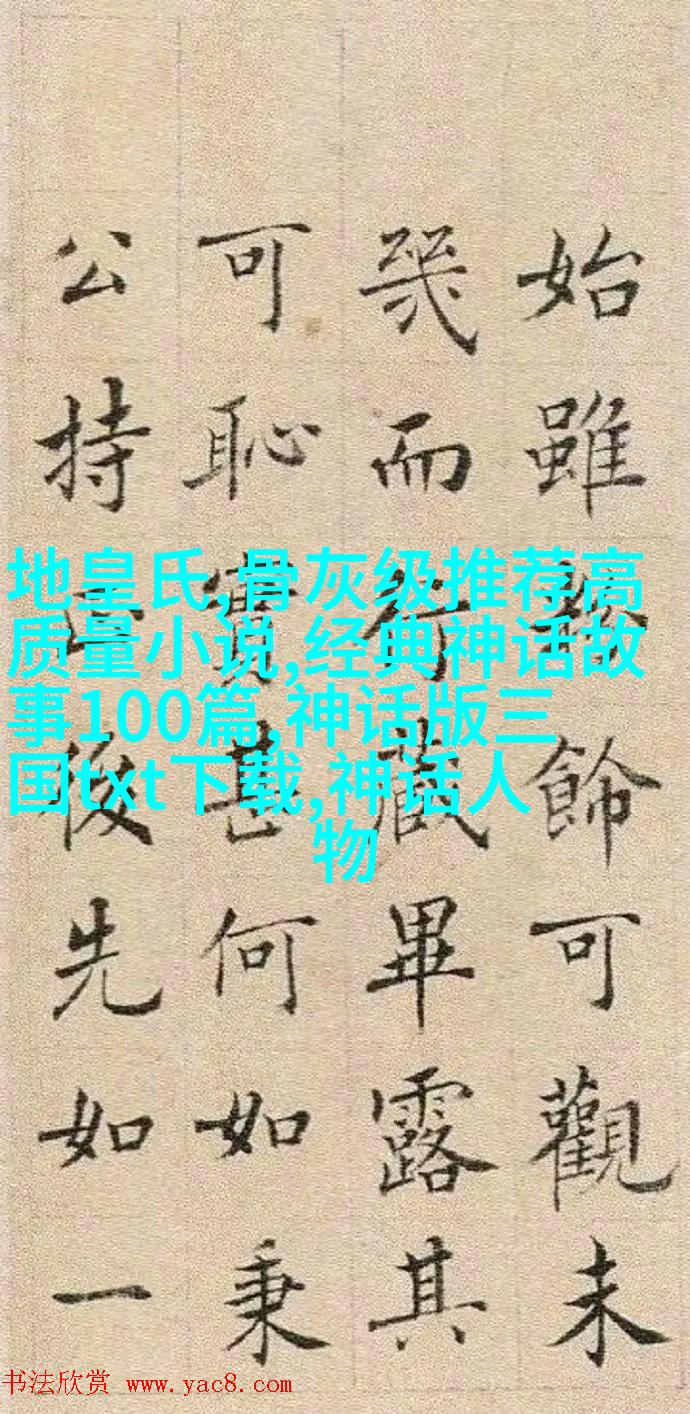 始雖飾可觀未
幾而行藏畢露其
可恥實甚何如秉
公持正後先如一
地皇氏,骨灰级推荐高
质量小说,经典神话故
事100篇,神话版三
国txt下载,神话人
物
书法欣赏 www.yac8.com